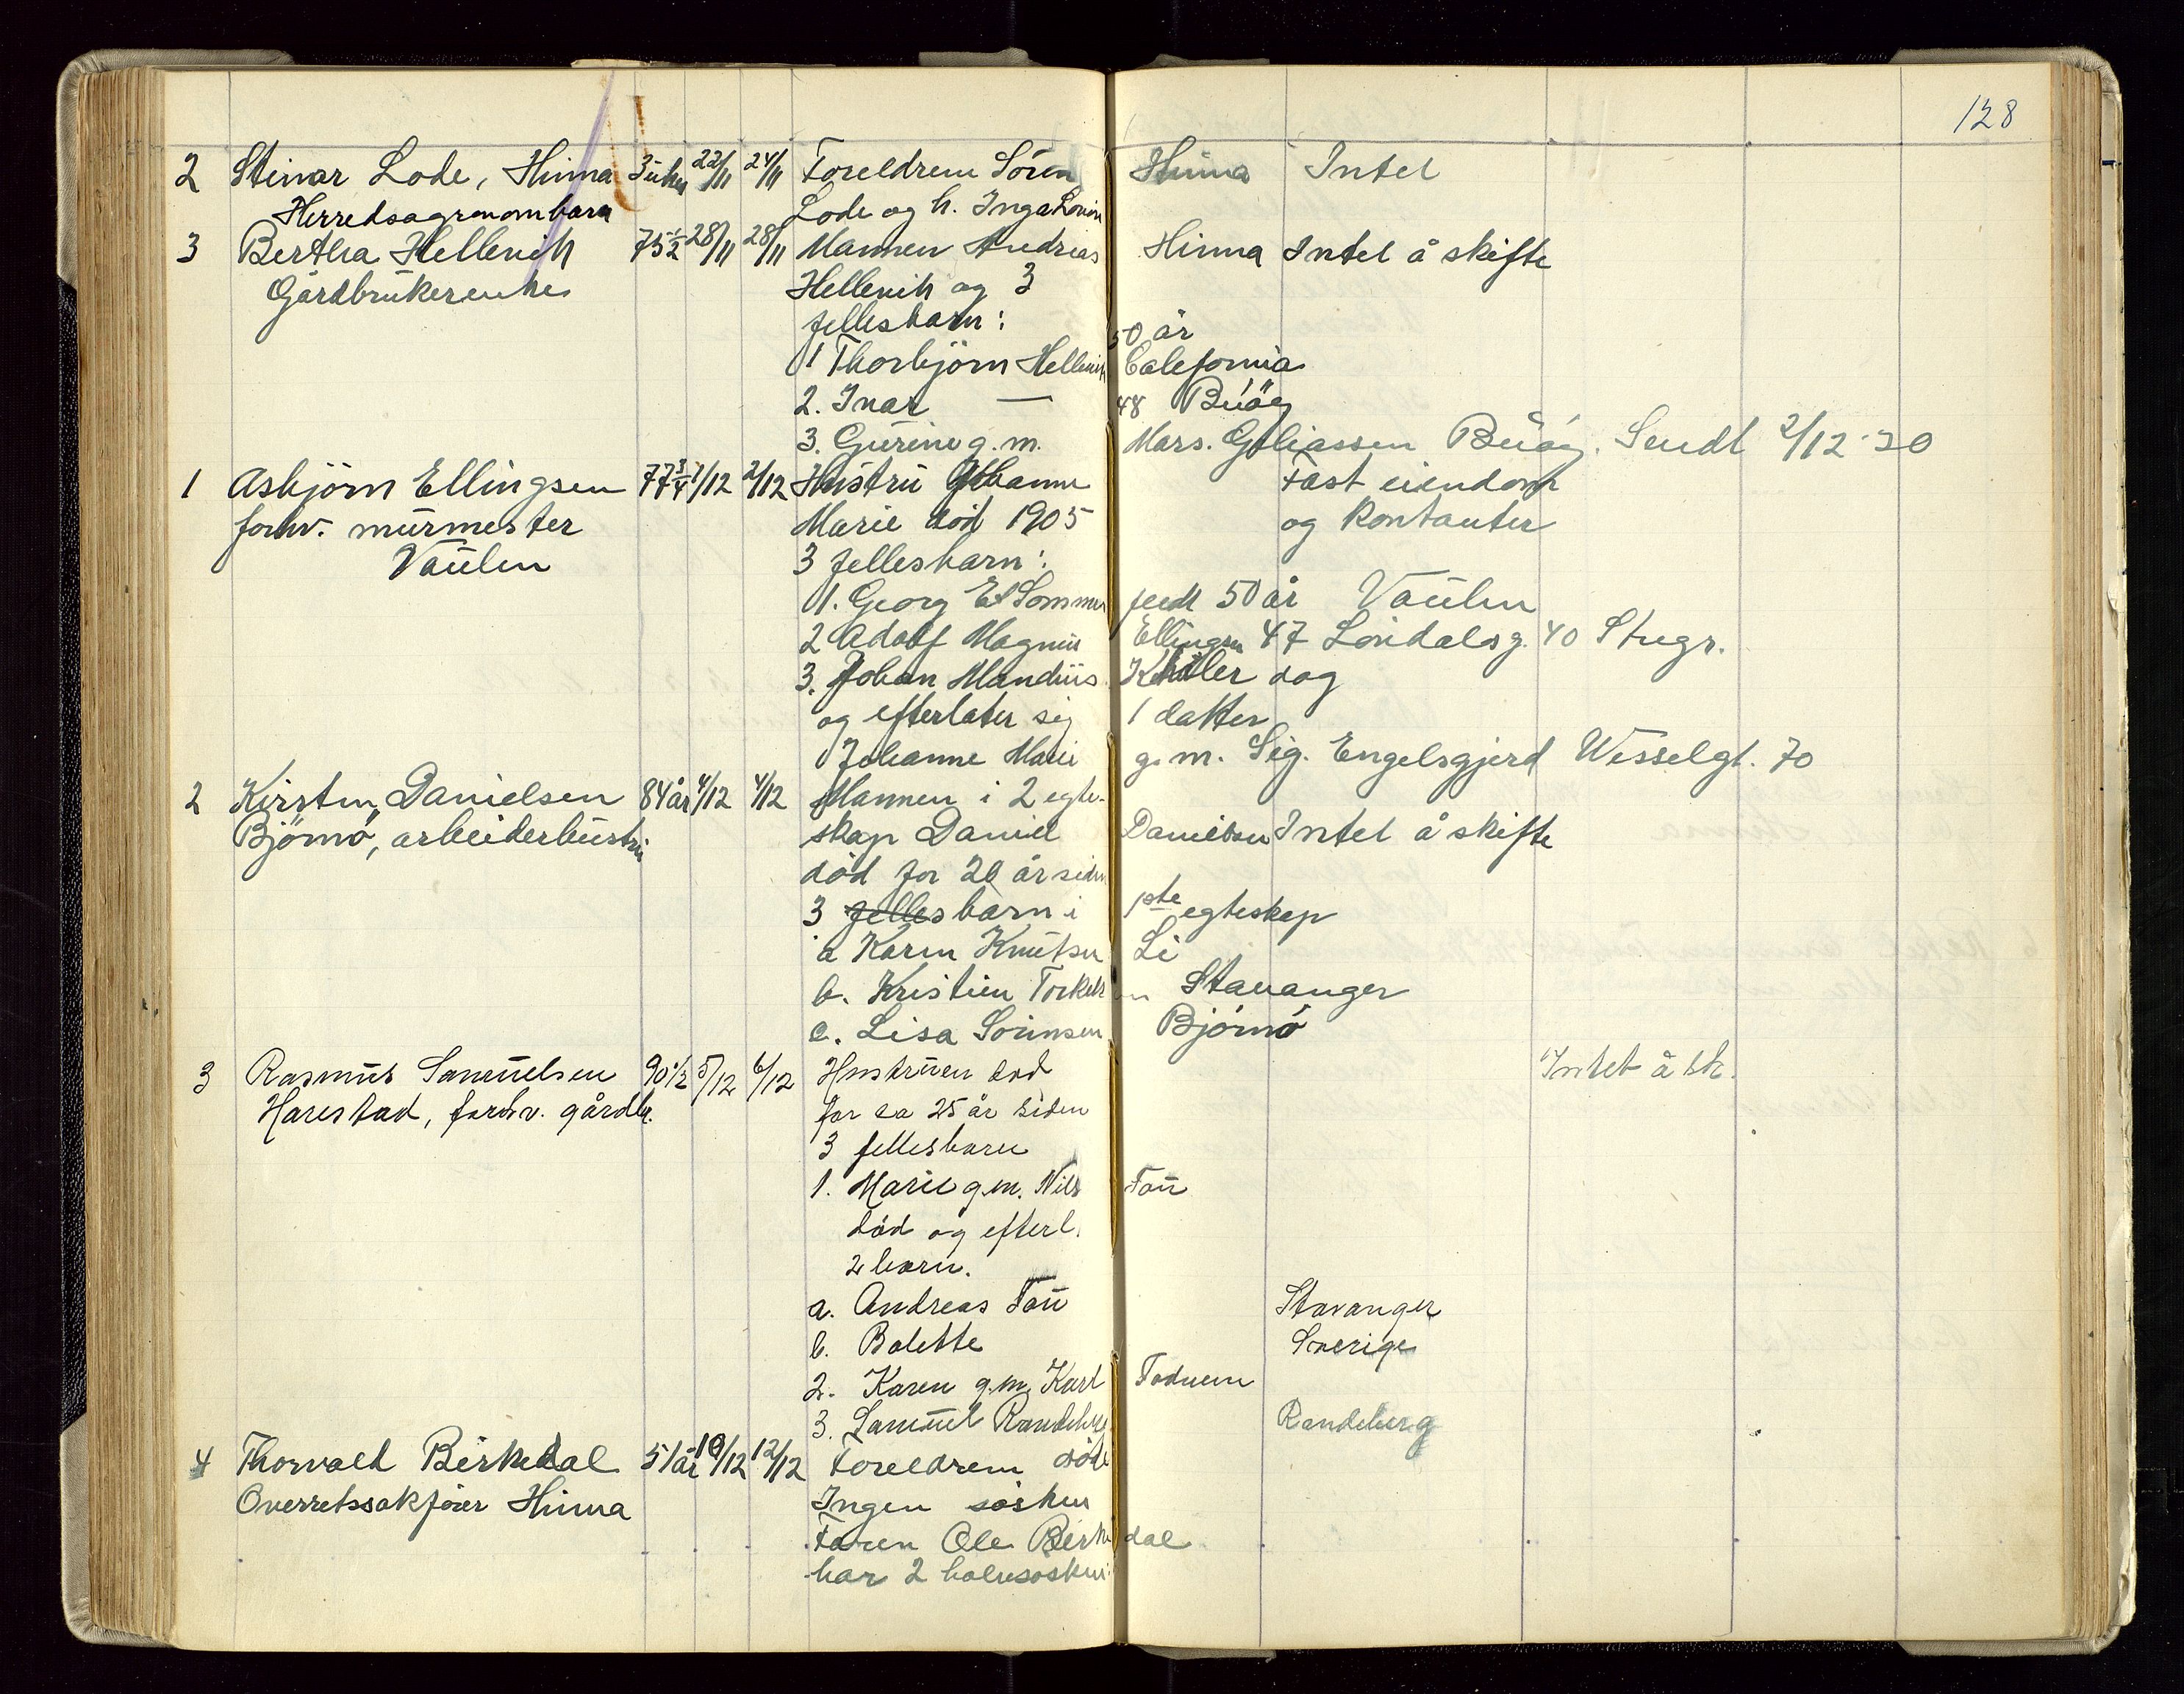 128
2 Steinar Lode, Hinna 3 uker 22/11 24/11 Foreldrene Sören Hinna Intel
Herredsagronombarn Lode og h. Inga Lovise
3 Bertha Hellevik 75 1/2 28/11 28/11 Mannen Andreas Hinna Intel å skifte
Gårdbrukerenke Hellevik og 3
fellesbarn: 50 år
1 Thorbjörn Hellevik Calefornia
2. Inar — 48 Buöy
3. Gurine g. m. Mars. Goliassen Buöy. Sendt 2/12-30
1 Asbjörn Ellingsen 77 3/4 1/12 2/12 Hustru Johanne Fast eiendom
forhv. murmester Marie död 1905 og kontanter
Vaulen 3 fellesbarn:
1. Georg E. Sommer födt 50 år Vaulen
2 Adolf Magnus Ellingsen 47 Londalsg. 40 Stvgr.
3. Johan Mandius dog
og efterlater sig 1 datter
Johanne Marie g. m. Sig. Engelsgjerd Wesselgt. 70
2 Kirsten Danielsen 84 år 4/12 4/12 Mannen i 2 egte-
Björnö, arbeiderhustru skap Daniel Danielsen Intel å skifte
död for 20 år siden
3 fellesbarn i 1ste egteskap
a Karen Knutsen Li
b. Kristine Torkelsen Stavanger
c. Lisa Sörensen Björnö
3 Rasmus Samuelsen 90 1/2 5/12 6/12 Hustruen död Intet å sk.
Harestad, forhv. gårdbr. for ca 25 år siden
3 fellesbarn
1. Marie g.m. Nils Tou
död og efterl.
2 barn.
a. Andreas Tou Stavanger
b. Bolette Sverige
2. Karen g.m. Karl Todnem
3. Samuel Randeberg Randeberg
4 Thorvald Birkedal 51 år 10/12 12/12 Foreldrene döde
Overretssakförer Hinna Ingen sösken
Faren Ole Birkedal
har 2 halvsösken